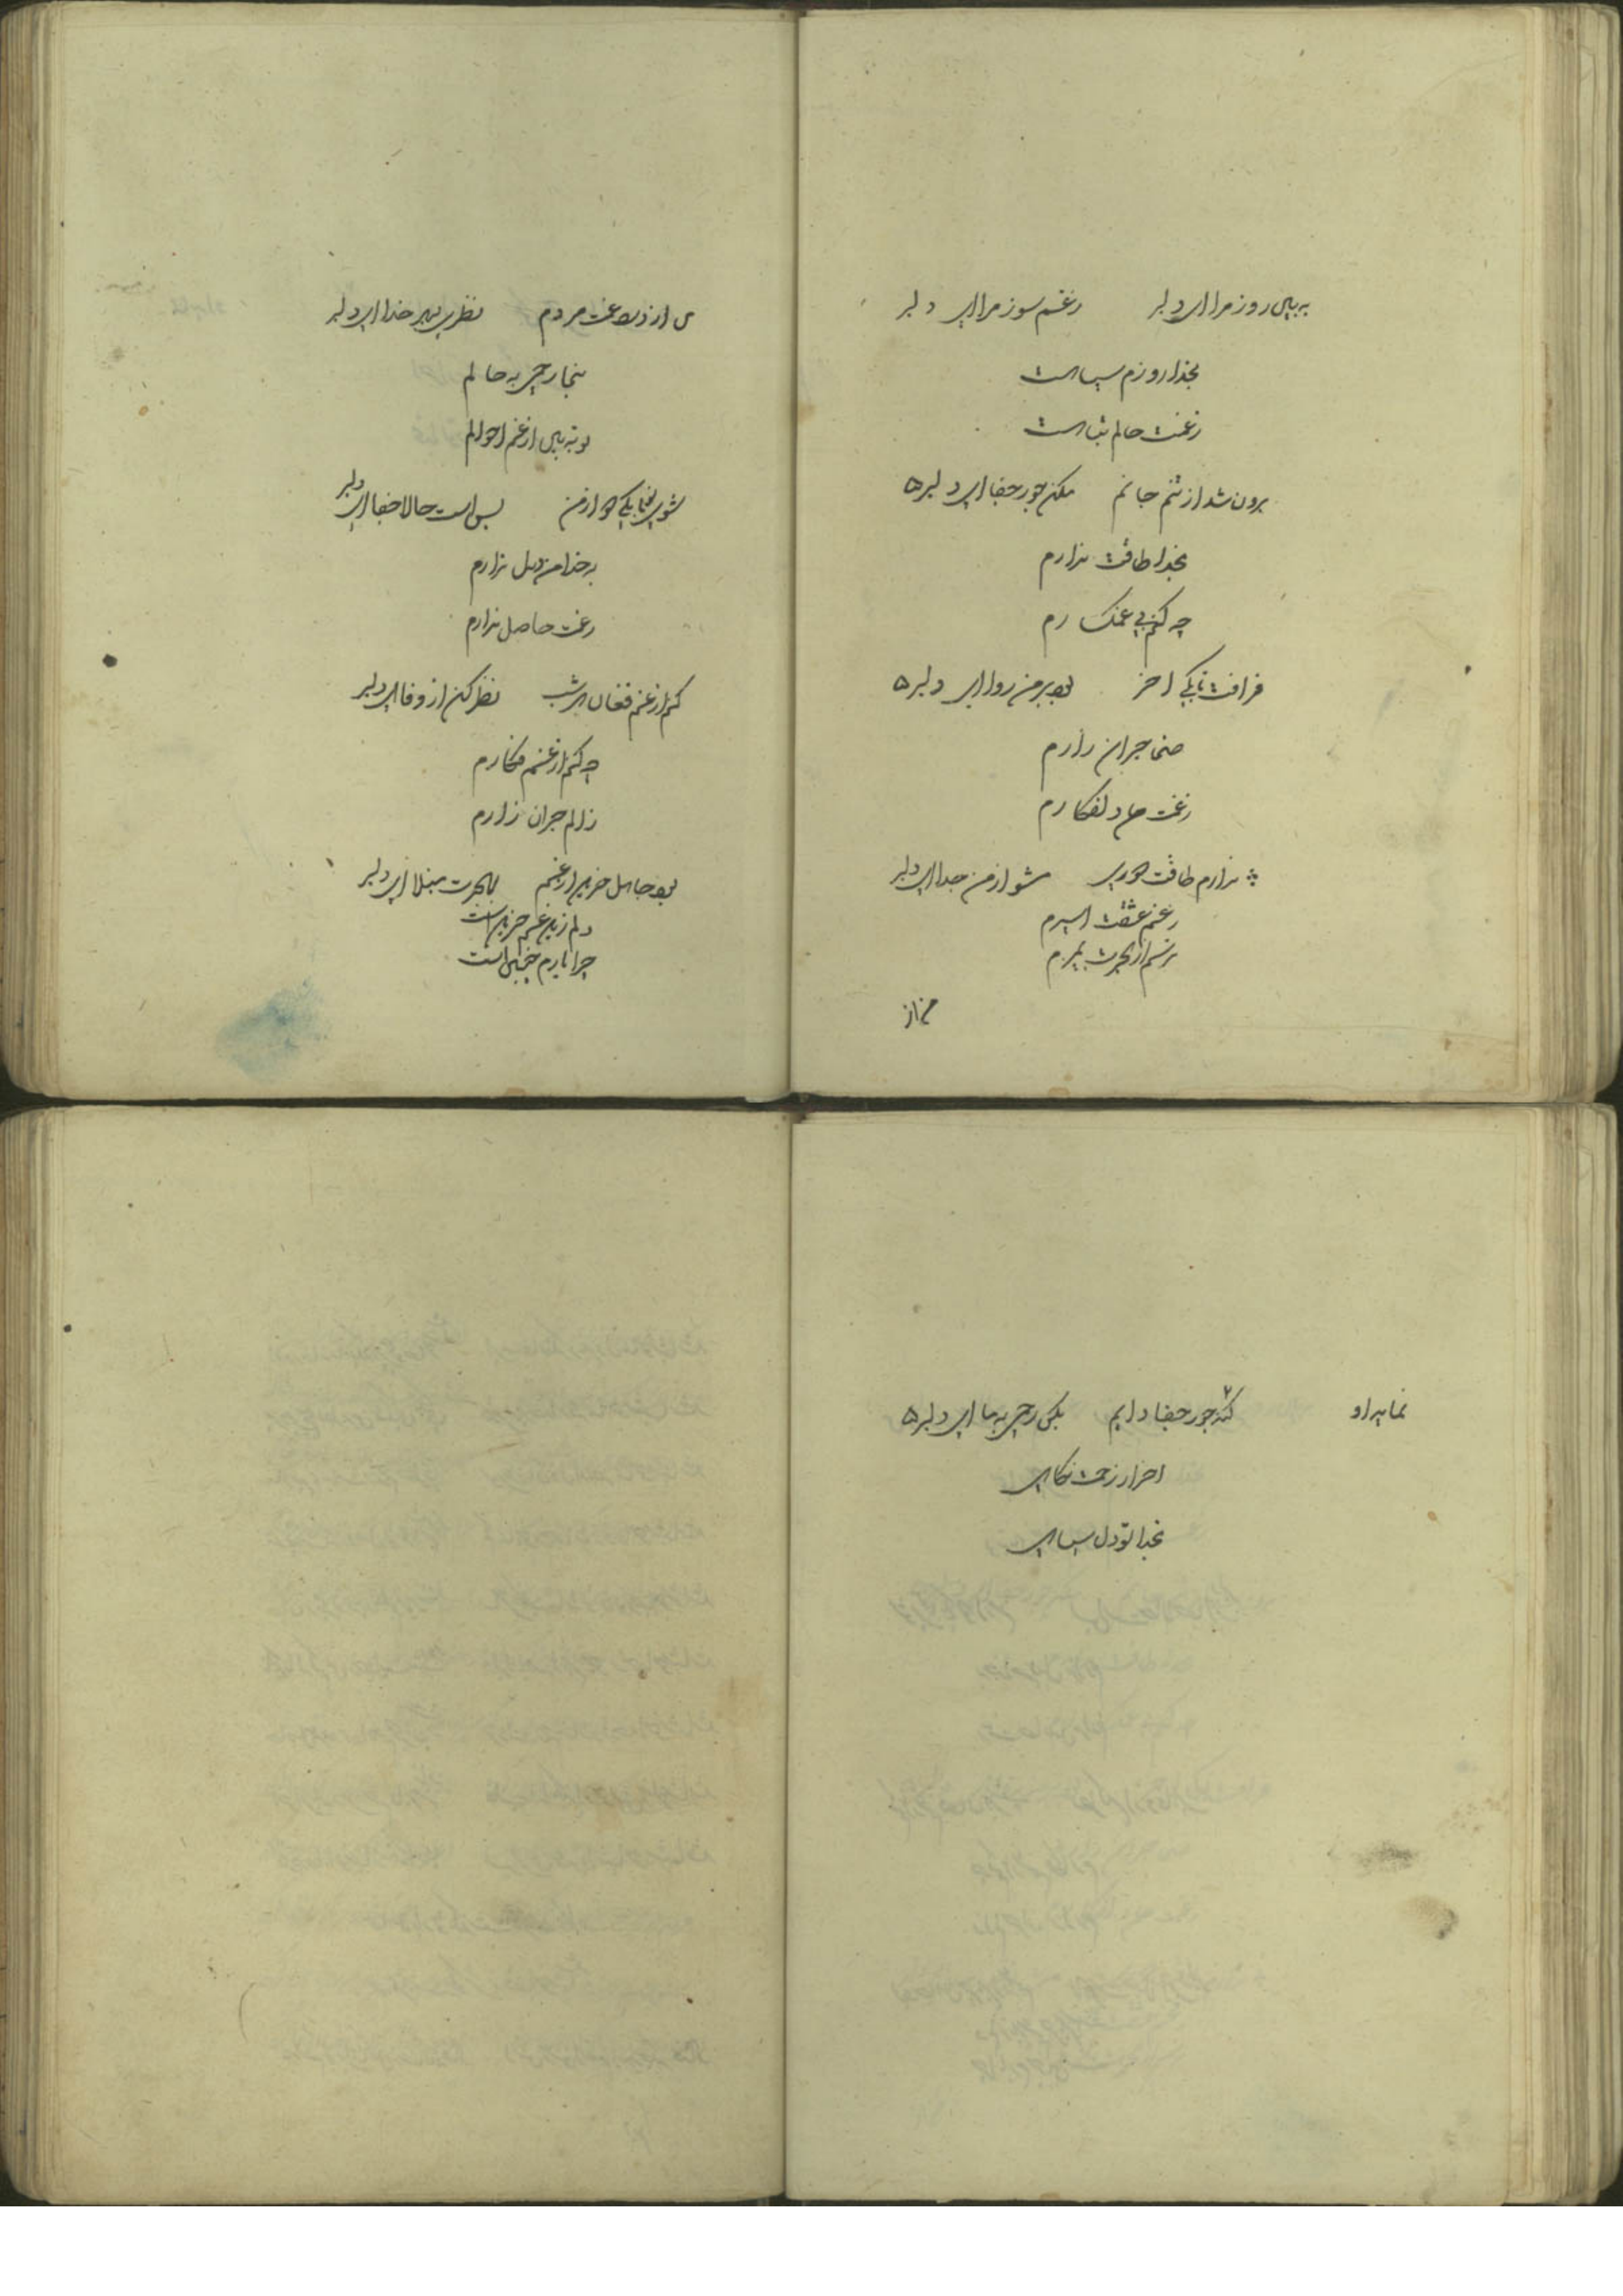 به بین روز مرا ای دلبر زغم سوز مرا ای دلبر
بخدا روزم سیاه است
زغمت حالم تباه است
برون شد از تنم جانم مکن جور جفا ای دلبر ه
بخدا طاقت ندارم
چه کنم بی غمگسارم
فراقت تابکی اخر بود بر من روا ای دلبر ه
صنما حیران زارم
زغمت من دلفکارم
ندارم طاقت دوری مشو از من جدا ای دلبر
زغم عشقت اسیرم
ترسم از هجرت بمیرم
من از
من از درد غمت مردم نظری بهر خدا ای دلبر
بنما رحمی به حالم
تو به بین از غم احوالم
شوی پنهان تابکی از من بس است حالا جفا ای دلبر
به خدا من دل ندارم
زغمت حاصل ندارم
کنم از غم فغان هر شب نظر کن از وفا ای دلبر
چه کنم از غم فکارم
ز الم حیران زارم
بود حاصل حزین از غم بهجرت مبتلا ای دلبر
دلم زین غم حزین است
چرا یارم چنین است
نماید او کند جور جفا دایم بکن رحمی به ما ای دلبر ه
اخر از رحمت نگاهی
بخدا تو دل سیاهی